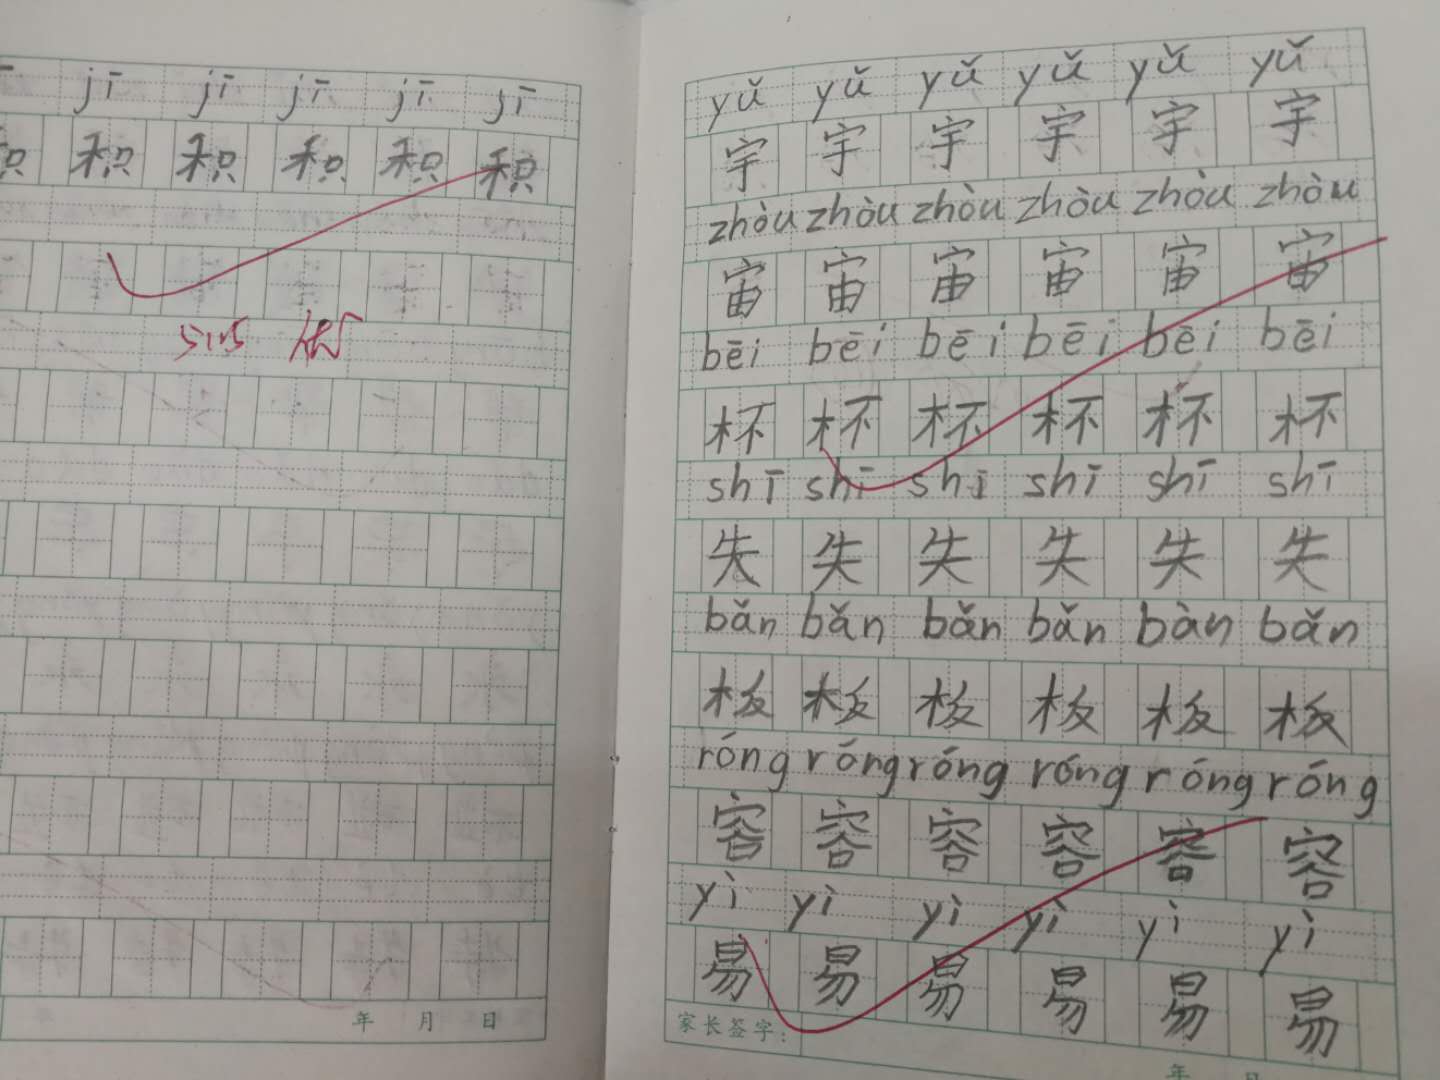 jī jī jī jī jī
积 积 积 积 积 积
优
年 月 日
yǔ yǔ yǔ yǔ yǔ yǔ
宇 宇 宇 宇 宇 宇
zhòu zhòu zhòu zhòu zhòu zhòu
宙 宙 宙 宙 宙 宙
bēi bēi bēi bēi bēi bēi
杯 杯 杯 杯 杯 杯
shī shī shī shī shī shī
失 失 失 失 失 失
bǎn bǎn bǎn bǎn bàn bǎn
板 板 板 板 板 板
róng róng róng róng róng róng
容 容 容 容 容 容
yì yì yì yì yì yì
易 易 易 易 易 易
家长签字：
年 月